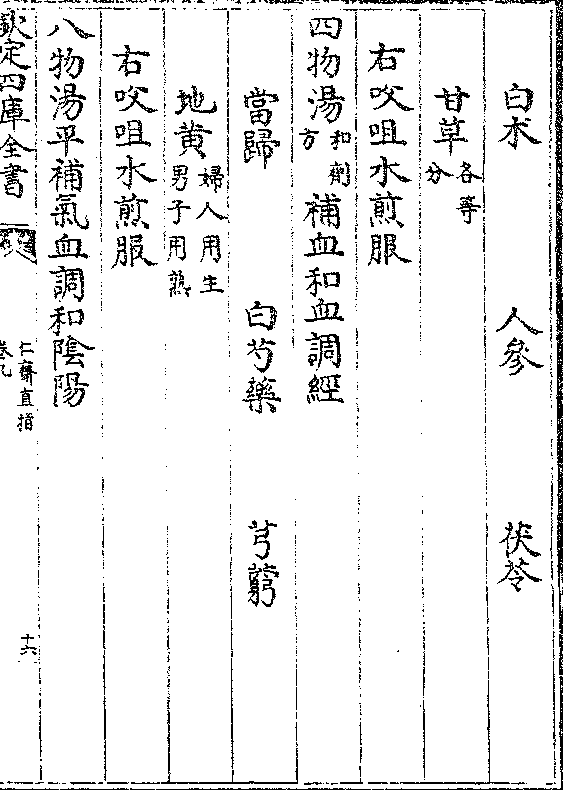 白朮 人參 茯苓
甘草各等分
右㕮咀水煎服
四物湯和劑方補血和血調經
當歸 白芍藥 芎藭
地黄婦人用生男子用熟
右㕮咀水煎服
八物湯平補氣血調和陰陽
欽定四庫全書 仁齋直指卷九 十六